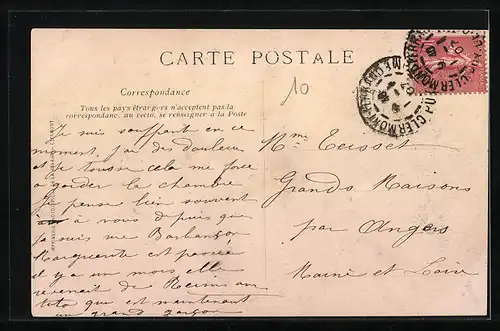 CARTE POSTALE
Correspondance
Tous les pays étrangers n'acceptent pas la
correspondance au recto, se renseigner à la Poste
10
Je suis souffrant en ce
moment, j'ai des douleurs
et je tousse cela me force
à garder la chambre
Je pense bien souvent
à vous depuis que
je suis me
Marguerite est passée
il y a un mois elle
revenait de Reims
que est maintenant
un grand garçon
Mme Teisset
Grandes Maisons
par Angers
Maine et Loire
CLERMONT